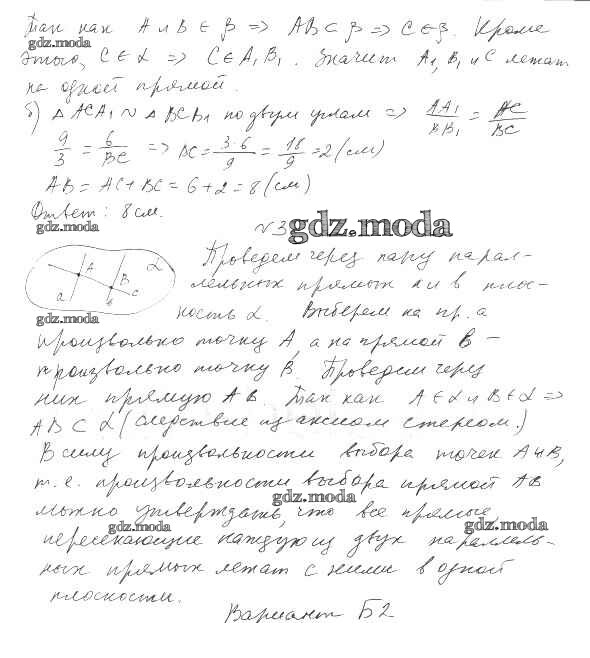 Так как A и B ∈ β => AB ⊂ β => C ∈ β. Кроме
gdz.moda
этого, C ∈ α => C ∈ A₁B₁. Значит A₁, B₁ и C лежат
на одной прямой.
б) △ACA₁ ~ △BCB₁ по двум углам => AA₁/BB₁ = AC/BC
9/3 = 6/BC => BC = 3·6/9 = 18/9 = 2 (см)
AB = AC + BC = 6 + 2 = 8 (см)
Ответ: 8 см.
gdz.moda
№3
gdz.moda
a A B b c α
gdz.moda
Проведем через пару парал-
лельных прямых a и b плос-
кость α. Выберем на пр. a
произвольно точку A, а на прямой B -
произвольно точку B. Проведем через
них прямую AB. Так как A ∈ α и B ∈ α =>
AB ⊂ α (следствие из аксиом стереом.)
В силу произвольности выбора точек A и B,
т.е. произвольности выбора прямой AB
gdz.moda
можно утверждать, что все прямые,
gdz.moda
gdz.moda
пересекающие каждую из двух параллель-
ных прямых лежат с ними в одной
плоскости.
Вариант Б2